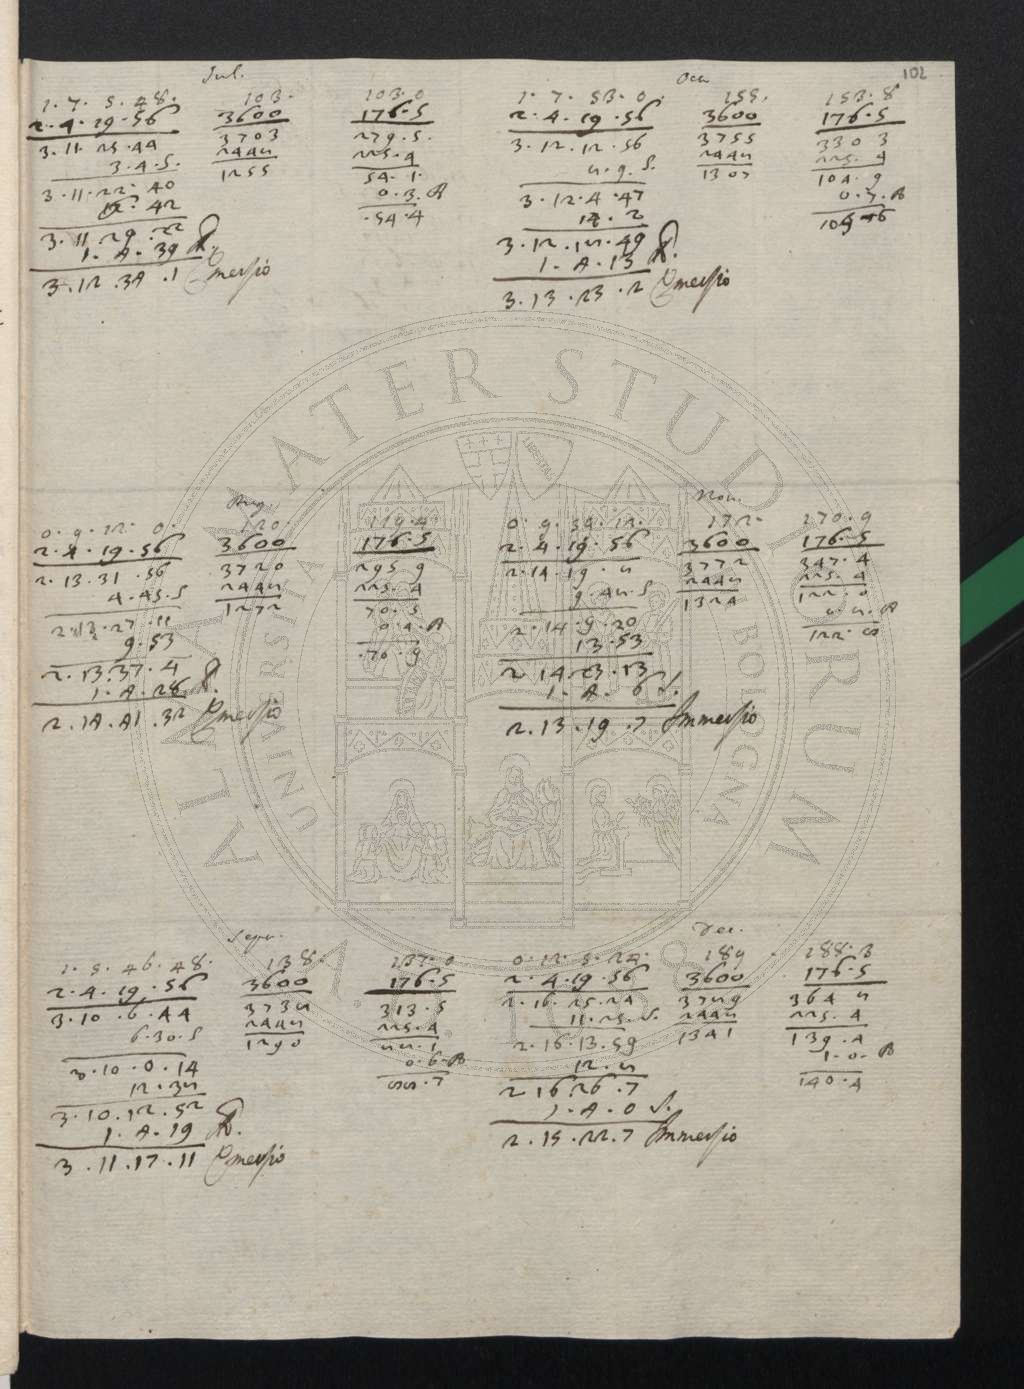 102
Jul.
1.7.5.48.
2.4.19.56
3.11.25.44
3.4.5.
3.11.22.40
6.42
3.11.29.22
1.4.39 A.
3.12.34.1 Emersio
103.
3600
3703
2448
1255
103.0
176.5
279.5.
225.4
54.1.
0.3.A
.54.4
Oct.
1.7.53.0.
2.4.19.56
3.12.12.56
8.9.S.
3.12.4.47
14.2
3.12.18.49
1.4.13 A.
3.13.23.2 Emersio
155.
3600
3755
2448
1307
153.8
176.5
330 3
225.4
104.9
0.7.A
105 6
Aug.
0.9.12.0.
2.4.19.56
2.13.31.56
4.45.S
2.13.27.11
9.53
2.13.37.4
1.4.28 A.
2.14.41.32 Emersio
120.
3600
3720
2448
1272
119.4
176.5
295 9
225.4
70.5
0.4.A
.70.9
Nov.
0.9.59.12.
2.4.19.56
2.14.19.8
9.48.S
2.14.9.20
13.53
2.14.23.13
1.4.6 S.
2.13.19.7 Immersio
172.
3600
3772
2448
1324
170.9
176.5
347.4
225.4
122.0
0.8.A
122.8
Septe.
1.5.46.48.
2.4.19.56
3.10.6.44
6.30.S
3.10.0.14
12.38
3.10.12.52
1.4.19 A.
3.11.17.11 Emersio
138.
3600
3738
2448
1290
137.0
176.5
313.5
225.4
88.1
0.6.A
88.7
Dec.
0.12.5.28.
2.4.19.56
2.16.25.24
11.25.S.
2.16.13.59
12.8
2 16.26.7
1.4.0 S.
2.15.22.7 Immersio
189
3600
3789
2448
1341
188.3
176.5
364 8
225.4
139.4
1.0.A
140.4
ALMA MATER STUDIORUM
UNIVERSITÀ DI BOLOGNA
A.D. 1088
LIBERTAS